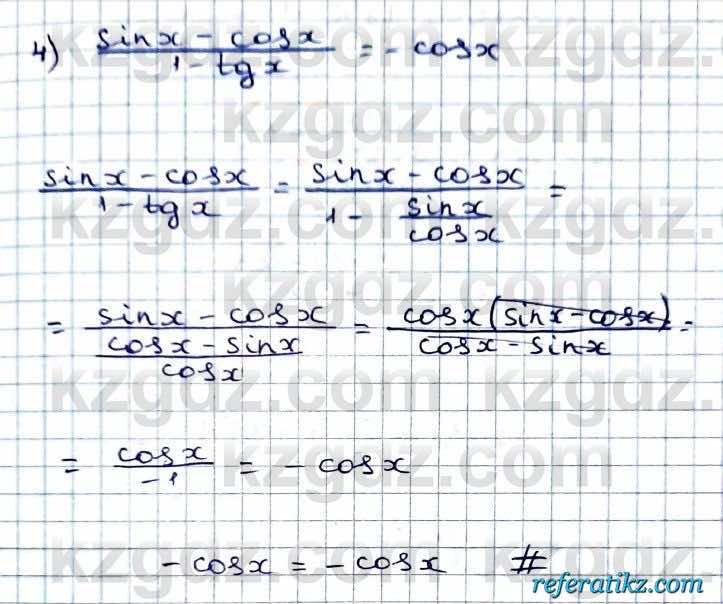 4) (sinx - cosx)/(1 - tgx) = - cosx
(sinx - cosx)/(1 - tgx) = (sinx - cosx)/(1 - sinx/cosx) =
= (sinx - cosx)/((cosx - sinx)/cosx) = cosx(sinx - cosx)/(cosx - sinx) =
= cosx/-1 = - cosx
- cosx = - cosx #
kzgdz.com
referatikz.com